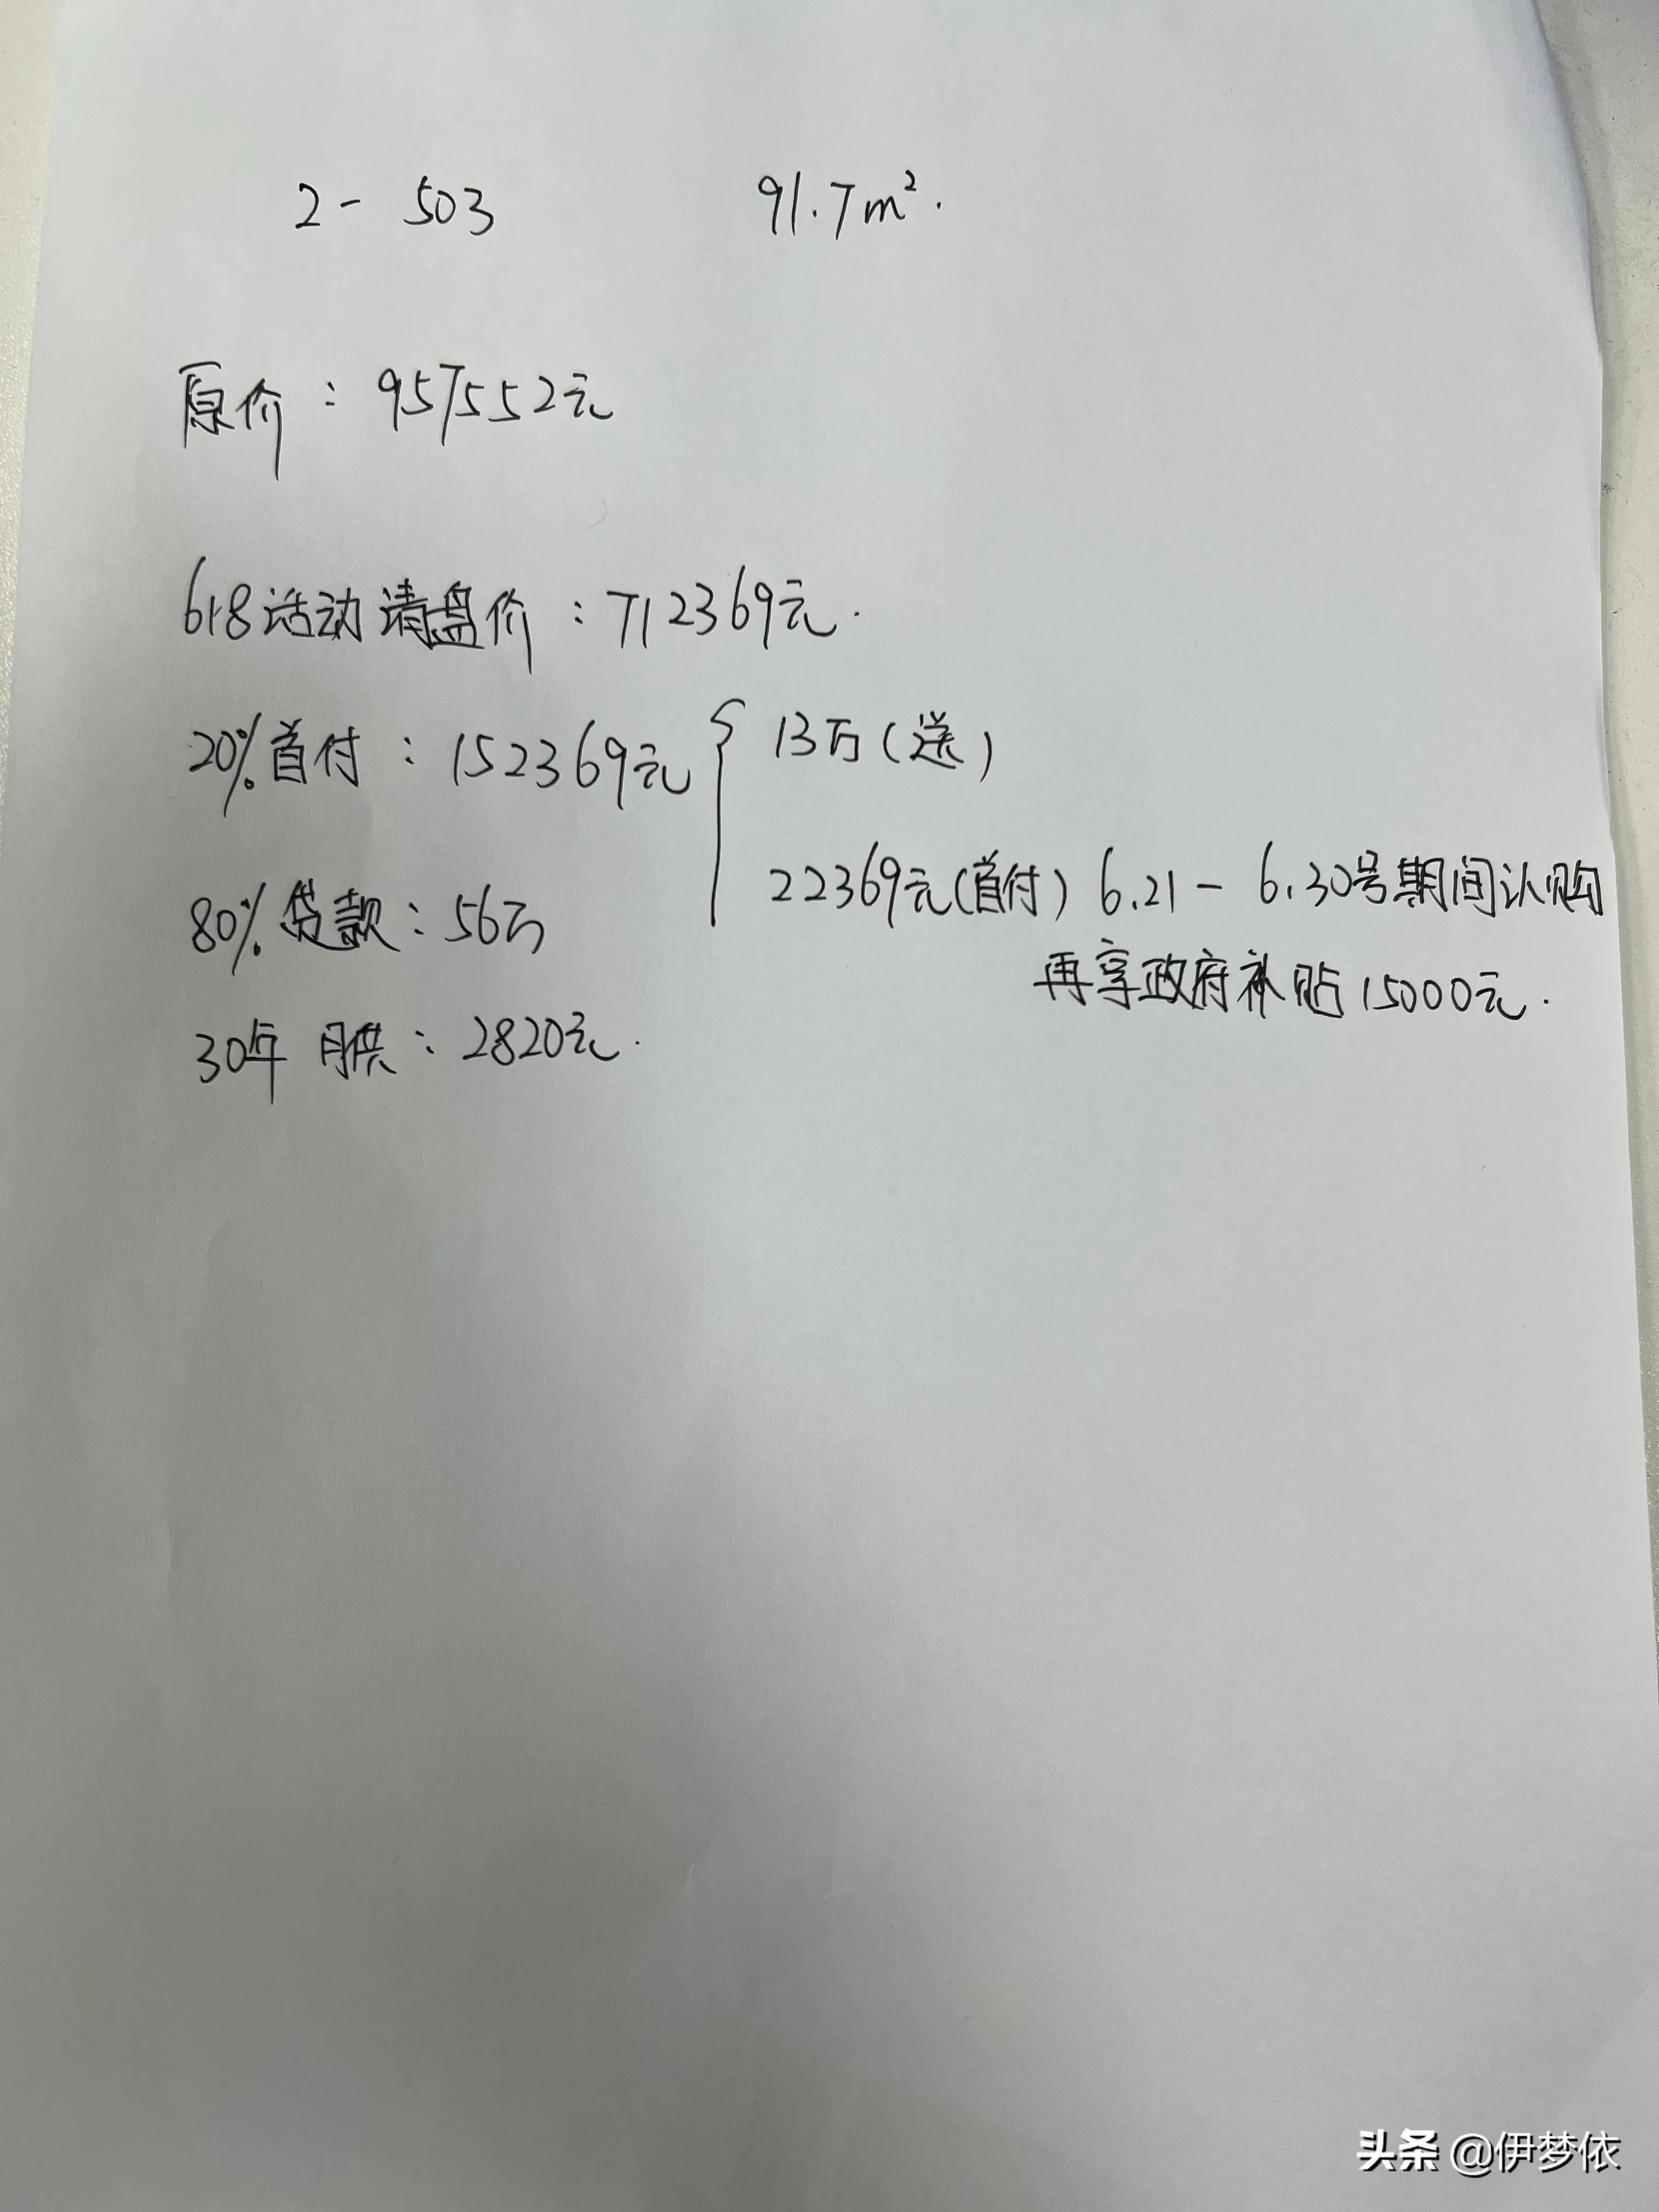 2-503 91.7m².
原价：957552元
618活动清盘价：712369元.
20%首付：152369元 { 13万(送)
22369元(首付) 6.21-6.30号期间认购
80%贷款：56万
再享政府补贴15000元.
30年月供：2820元.
头条 @伊梦依